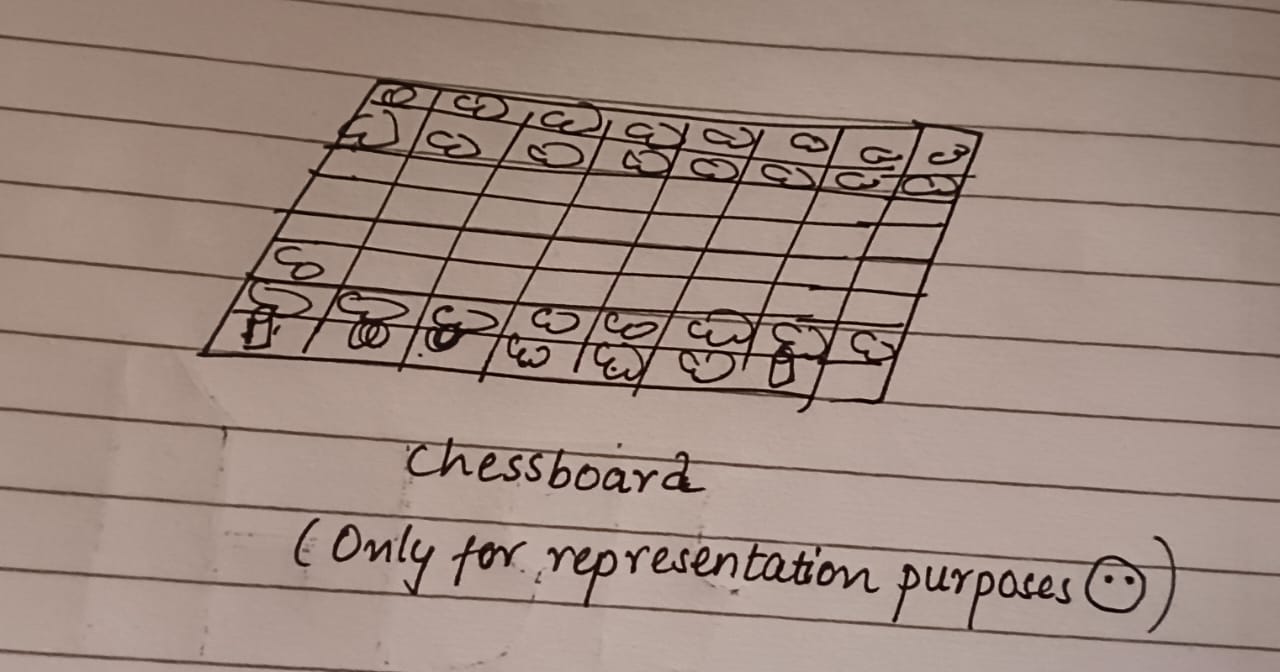 chessboard
(Only for representation purposes ☺)